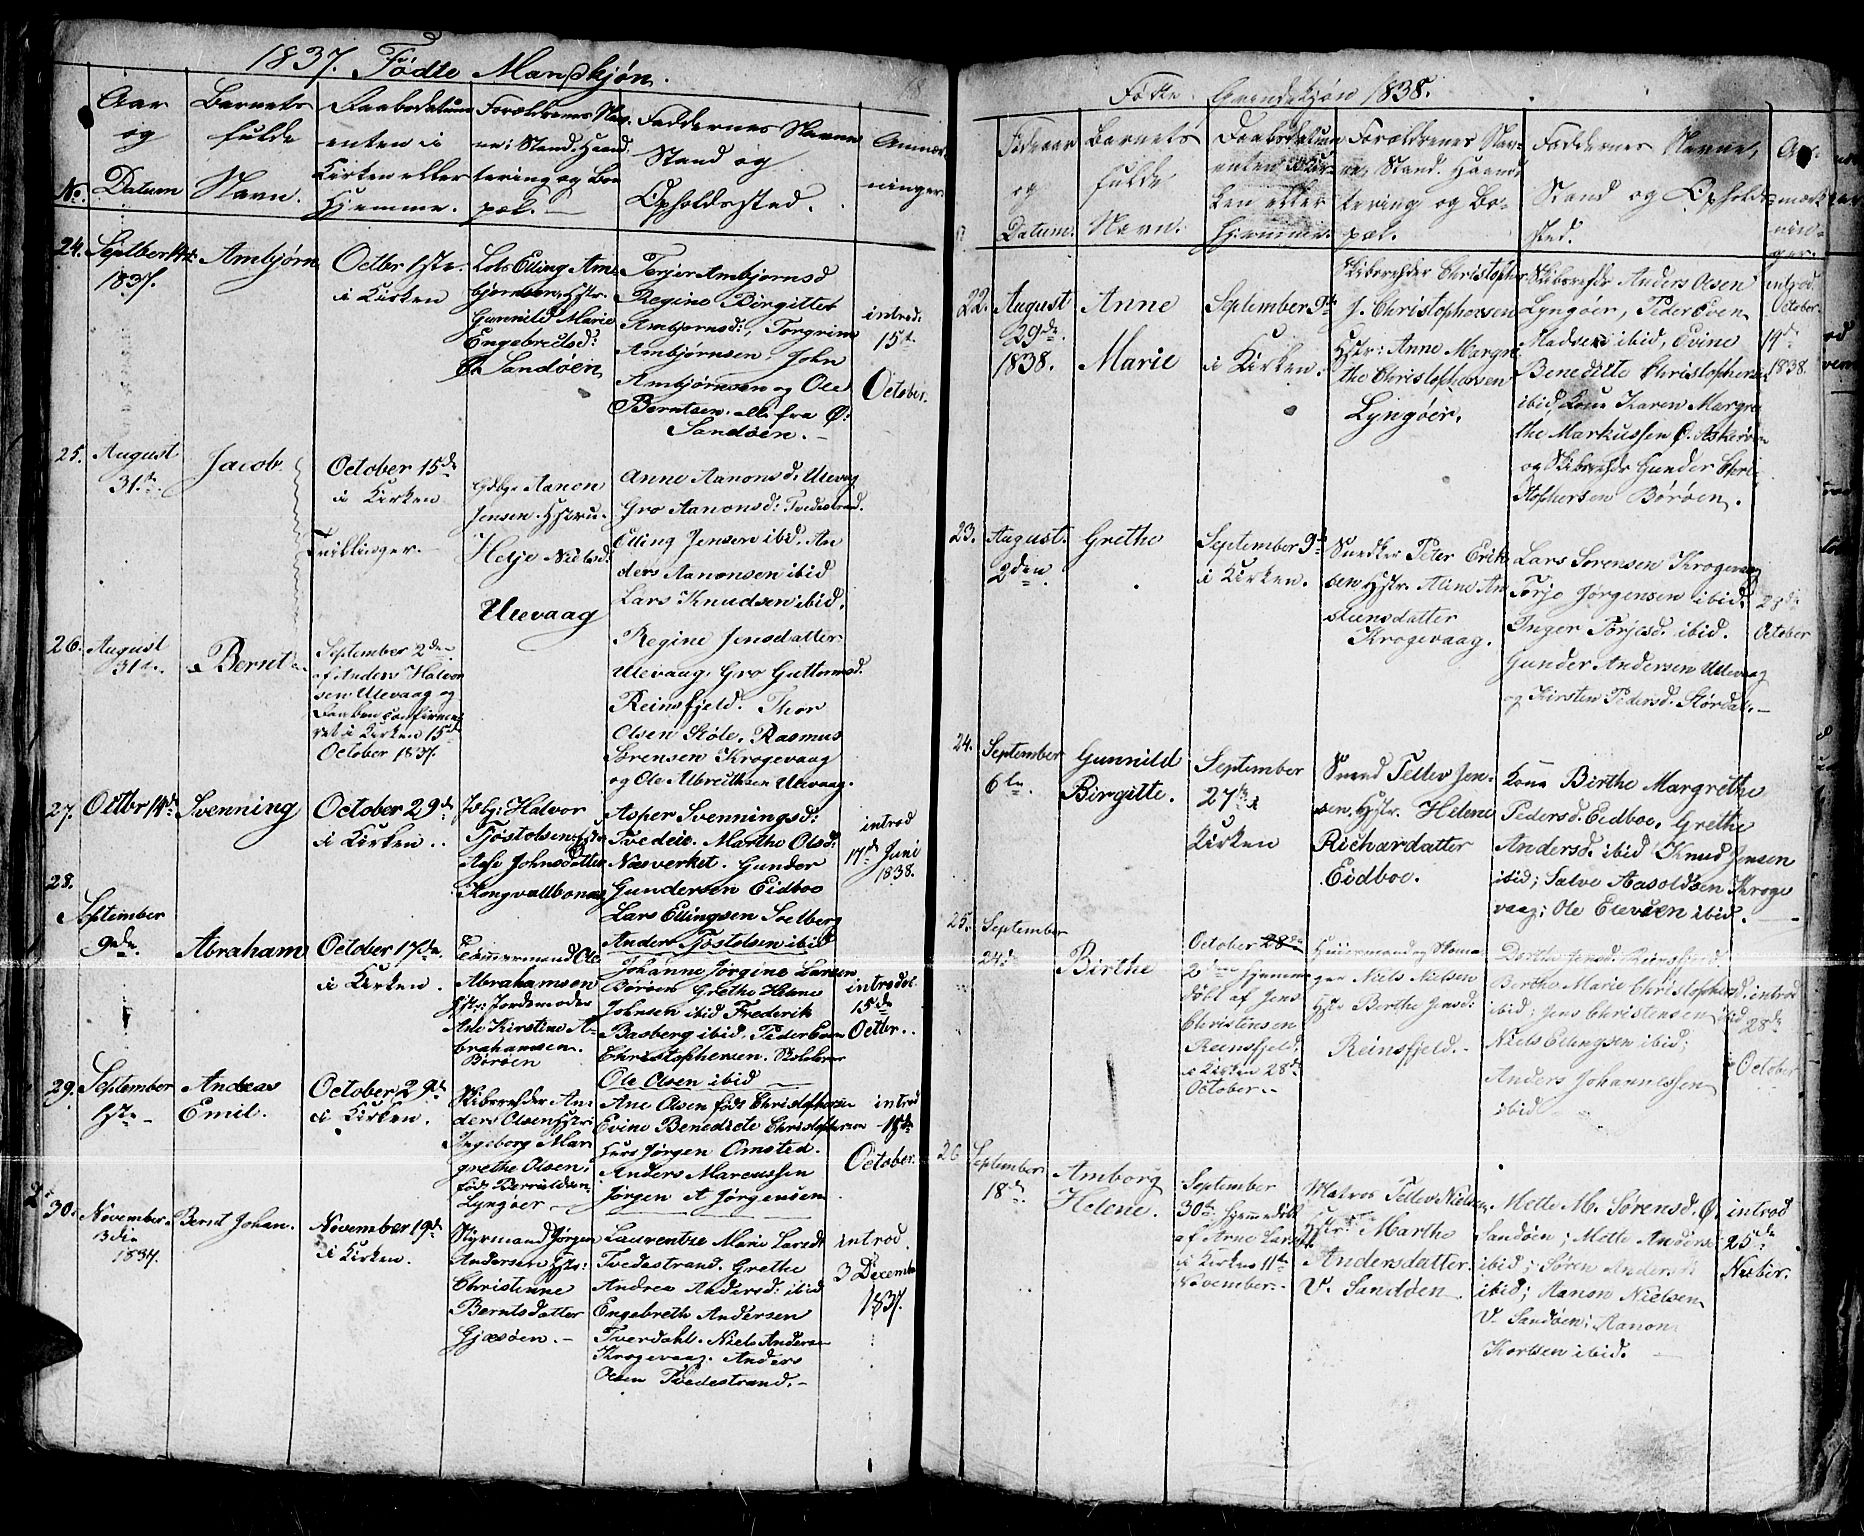 1837. Födte Mandkjön.
Aar
og
Datum
No.
Barnets
fulde
Navn.
Daabsdatum
enten i
Kirken eller
Hjemme.
Forældrenes Nav-
ne, Stand, Hand-
tering og Bo-
pæl.
Faddernes Navne
Stand og
Opholdssted.
Anmær-
ninger.
24. Septber 14de
1837.
Ambjørn
Octbr 1ste
i Kirken
Lods Elling Am-
bjørnsen, Hstr.
Gunnild Marie
Engebretsd:
Ø. Sandøen
Terjer Ambjørnsd
Regine Birgitte
Ambjørnsd:, Torgrim
Ambjørnsen, John
Ambjørnsen og Ole
Berntsen. alle fra Ø:
Sandøen.
introd:
15de
October.
25. August
31te
Jacob
October 15de
i Kirken
Tvillinger.
Gdbgr Aanon
Jensen. Hstru.
Helje Nielsd:
Ulevaag
Anne Aanonsd: Ulevag
Gro Aanonsd: Tvedestrand.
Elling Jensen ibid. An
ders Aanonsen ibid
Lars Knudsen ibid.
26. August
31te
Bernt
September 2de
af Anders Halvor
sen Ulevaag og
Daaben confirme
ret i Kirken 15de
October 1837.
Regine Jensdatter
Ulevaag, Gro Guttormsd.
Reinsfjeld. Thor
Olsen Støle. Rasmus
Sørensen Krogevaag
og Ole Albretksen Ulevaag.
27. Octbr 14de
Svenning
October 29de
i Kirken.
Halvor
Tjøstolsen Hstr
Aase Johnsdatter
Kongvallbonæs
Asper Svenningsd:
Tvedeie. Marthe Olsd:
Næsverket. Gunder
Gundersen Eidboe
Lars Ellingsen Solberg
Anders Tjøstolsen ibid
introd
17de Juni
1838.
28.
September
9nde
Abraham
October 17de
i Kirken.
Tømmermand Ole
Abrahamsen
Hstr: Jordemoder
Ane Kirstine A-
brahamsen.
Børøen
Johanne Jørgine Larsen
Børøen Grethe Helene
Johnsen ibid Frederik
Basberg ibid. Peder Even
Christophersen. Skolelærer
Ole Olsen ibid
introdct
15de
Octbr.
29. September
1ste
Andreas
Emil.
October 29de
i Kirken.
Skibsreder An-
ders Olsen Hstr:
Ingeborg Mar
grethe Olsen,
født Berntdsen
Lyngöer
Ane Olsen født Christophersen
Evine Benedicte Christophersen
Lurs Jørgen Omsted.
Anders Marcussen
Jörgen A Jørgensen
introd
15de
October.
30. November
13die
1837.
Bernt Johan.
November 19de
i Kirken.
Styrmand Jørgen
Andersen Hstr:
Christenne
Berntsdatter
Gjæsøen.
Laurentze Marie Larsd:
Tvedestrand. Grethe
Andrea Andersd: ibid
Engebreth Andersen
Tverdahl. Niels Anders
Krogevaag. Anders
Olsen Tvedestrand.
introd.
3 Decemb
1837.
Fötte Qvindekjön 1838.
Födeaar
og
Datum.
Barnets
fulde
Navn.
Daabsdatum
enten i Kir-
ken eller
Hjemme.
Forældrenes Nav-
ne, Stand. Haand
tering og Bo-
pæl.
Faddernes Navne,
Stand og Opholds-
sted.
mærk
nin-
ger.
22. August
29de
1838.
Anne
Marie
September 9de
i Kirken.
Skibsreder Christopher
J. Christophersen
Hstr: Anne Margre
the Christophersen
Lyngøer.
Skibsreder Anders Olsen
Lyngøer, Peder Even
Madsen ibid, Evine
Beneditte Christophersen
ibid, Kone Karen Margre
the Markussen Ø. Askerøen
og Skibsreder Gunder Chri
stophersen Børøen.
introd.
October
19de
1838
23. August.
2den
Grethe
September 9de
i Kirken.
Snedker Peter Erik
sen Hstr. Aline An
stensdatter
Krogevaag.
Lars Sørensen Krogevaag
Torje Jørgensen ibid.
Inger Torjesd. ibid.
Gunder Andersen Ulevaag
og Kirsten Pedersd. Størdal.
28de
October
24. September
6te
Gunnild
Birgitte.
September
27de i
Kirken
Smed Tellev Jen-
sen, Hstr. Helene
Richardatter
Eidboe.
Kone Birthe Margrethe
Pedersd. Eidboe. Grethe
Andersd. ibid Knud Jensen
ibid; Salve Aasoldsen Kroge
vaag; Ole Elevsen ibid.
25. September
24de
Birthe
October 28de
2den hjemme
døbt af Jens
Christensen
Reinsfjeld.
i Kirken 28de
October.
Huusmand og Skoma
ger Niels Nielsen
Hstr Berthe Jensd:
Reinsfjeld.
Dorthe Jensd. Reinsfjeld
Berthe Marie Christophersd.
ibid; Jens Christensen ibid
Niels Ellingsen ibid;
Anders Johannessen
ibid
introd
28de
October
26 September
18de
Amborg
Helene.
September
30te Hjemmedøbt
af Arne Larsen
i Kirken 11te
November.
Matros Tellev Nielsen
Hstr: Marthe
Andersdatter
V. Sandøen
Mette M. Sørensd. Ø.
Sandøen; Mette Andersd
ibid; Søren Andersd
ibid; Aanon Nielsen
V. Sandøen; Aanon
Korlsen ibid.
introd
25de
Nvbr.